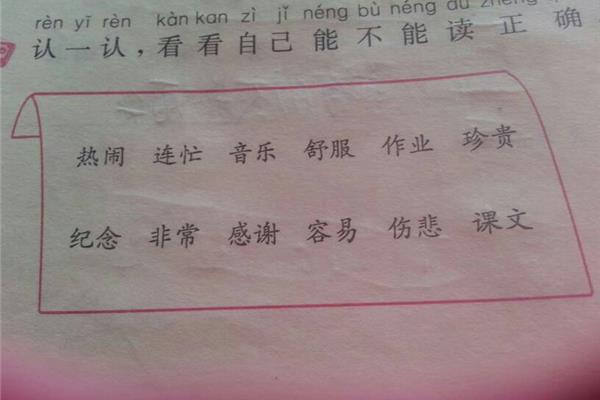 rèn yī rèn kàn kan zì jǐ néng bù néng dú zhèng
认一认，看看自己能不能读正确
热闹 连忙 音乐 舒服 作业 珍贵
纪念 非常 感谢 容易 伤悲 课文